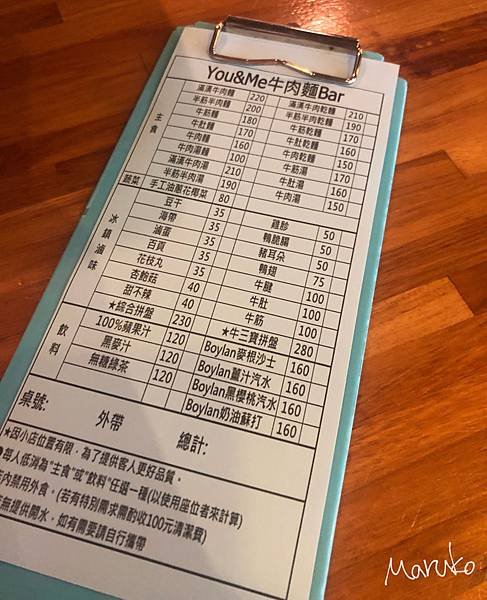 You&Me牛肉麵Bar
主食
滿漢牛肉麵 220 滿漢牛肉乾麵 210
半筋半肉麵 200 半筋半肉乾麵 190
牛筋麵 180 牛筋乾麵 170
牛肚麵 170 牛肚乾麵 160
牛肉麵 160 牛肉乾麵 150
牛肉湯麵 100 牛筋湯 170
滿漢牛肉湯 210 牛肚湯 160
半筋半肉湯 190 牛肉湯 150
蔬菜 手工油蔥花椰菜 80
冰鎮滷味
豆干 35 雞胗 50
海帶 35 鴨脆腸 50
滷蛋 35 豬耳朵 50
百頁 35 鴨翅 75
花枝丸 35 牛腱 100
杏鮑菇 40 牛肚 100
甜不辣 40 牛筋 100
★綜合拼盤 230 ★牛三寶拼盤 280
飲料
100%蘋果汁 120 Boylan麥根沙士 160
黑麥汁 120 Boylan薑汁汽水 160
無糖綠茶 120 Boylan黑櫻桃汽水 160
Boylan奶油蘇打 160
桌號: 外帶 總計:
★因小店位置有限，為了提供客人更好品質。
每人低消為"主食"或"飲料"任選一種(以使用座位者來計算)
店內禁用外食。(若有特別需求需酌收100元清潔費)
無提供開水，如有需要請自行攜帶
Maruko.